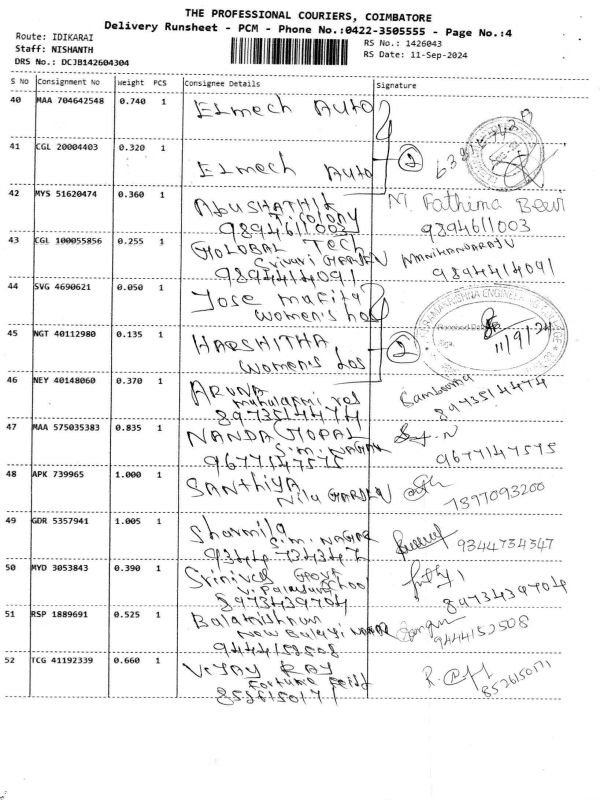 THE PROFESSIONAL COURIERS, COIMBATORE
Delivery Runsheet - PCM - Phone No.:0422-3505555 - Page No.:4
Route: IDIKARAI
Staff: NISHANTH
DRS No.: DCJB142604304
RS No.: 1426043
RS Date: 11-Sep-2024
S No Consignment No Weight PCS Consignee Details Signature
40 MAA 704642548 0.740 1 Elmech Auto
41 CGL 20004403 0.320 1 Elmech Auto 2
42 MYS 51620474 0.360 1 Abushathik M. Fathima Beevi
Colony
9894611003 9894611003
43 CGL 100055856 0.255 1 Golobal Tech Manikandaraju
Srivari Garden
9894414091 9894414091
44 SVG 4690621 0.050 1 Jose Mafita
Women's hos
45 NGT 40112980 0.135 1 HARSHITHA 2 11/9/24
Women's hos
46 NEY 40148060 0.370 1 ARUNA
Mahalaxmi
8973514474 8973514474
47 MAA 575035383 0.835 1 NANDA GOPAL
S.M. NAGAR
9677147575 9677147575
48 APK 739965 1.000 1 SANTHIYA
Nila GARDEN 7397093200
49 GDR 5357941 1.005 1 Sharmila
S.M. NAGAR
9344734347 9344734347
50 MYD 3053843 0.390 1 Srinivas Govt
School
8973439704 8973439704
51 RSP 1889691 0.525 1 Balakrishnan
New Balaji Nagar
9444152508 9444152508
52 TCG 41192339 0.660 1 VIJAY RAJ
Fortune Field
8526150171 8526150171